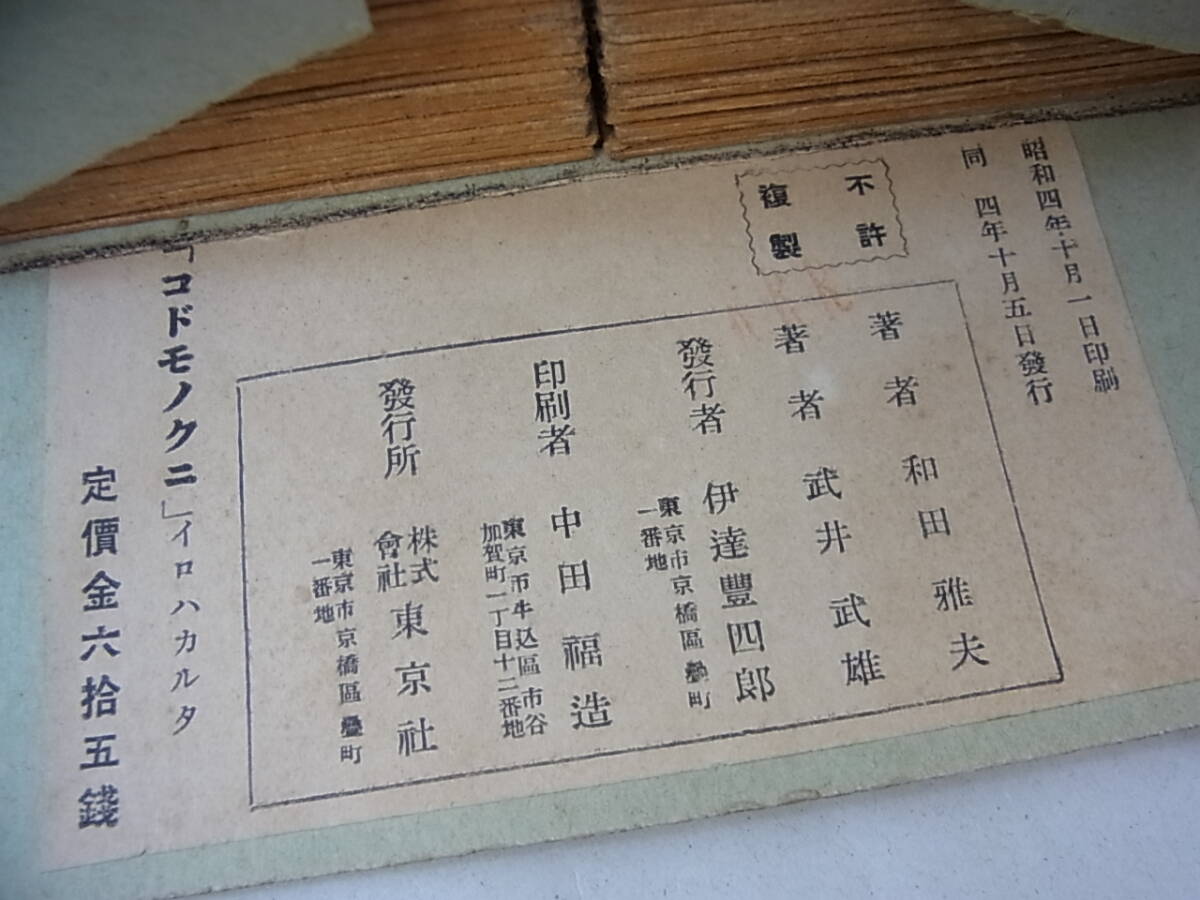 昭和四年十月一日印刷
同 四年十月五日發行
不許
複製
著者 和田雅夫
著者 武井武雄
發行者 伊達豐四郎
東京市京橋區疊町
一番地
印刷者 中田福造
東京市牛込區市谷
加賀町一丁目十二番地
發行所 株式會社東京社
東京市京橋區疊町
一番地
「コドモノクニ」イロハカルタ
定價金六拾五錢